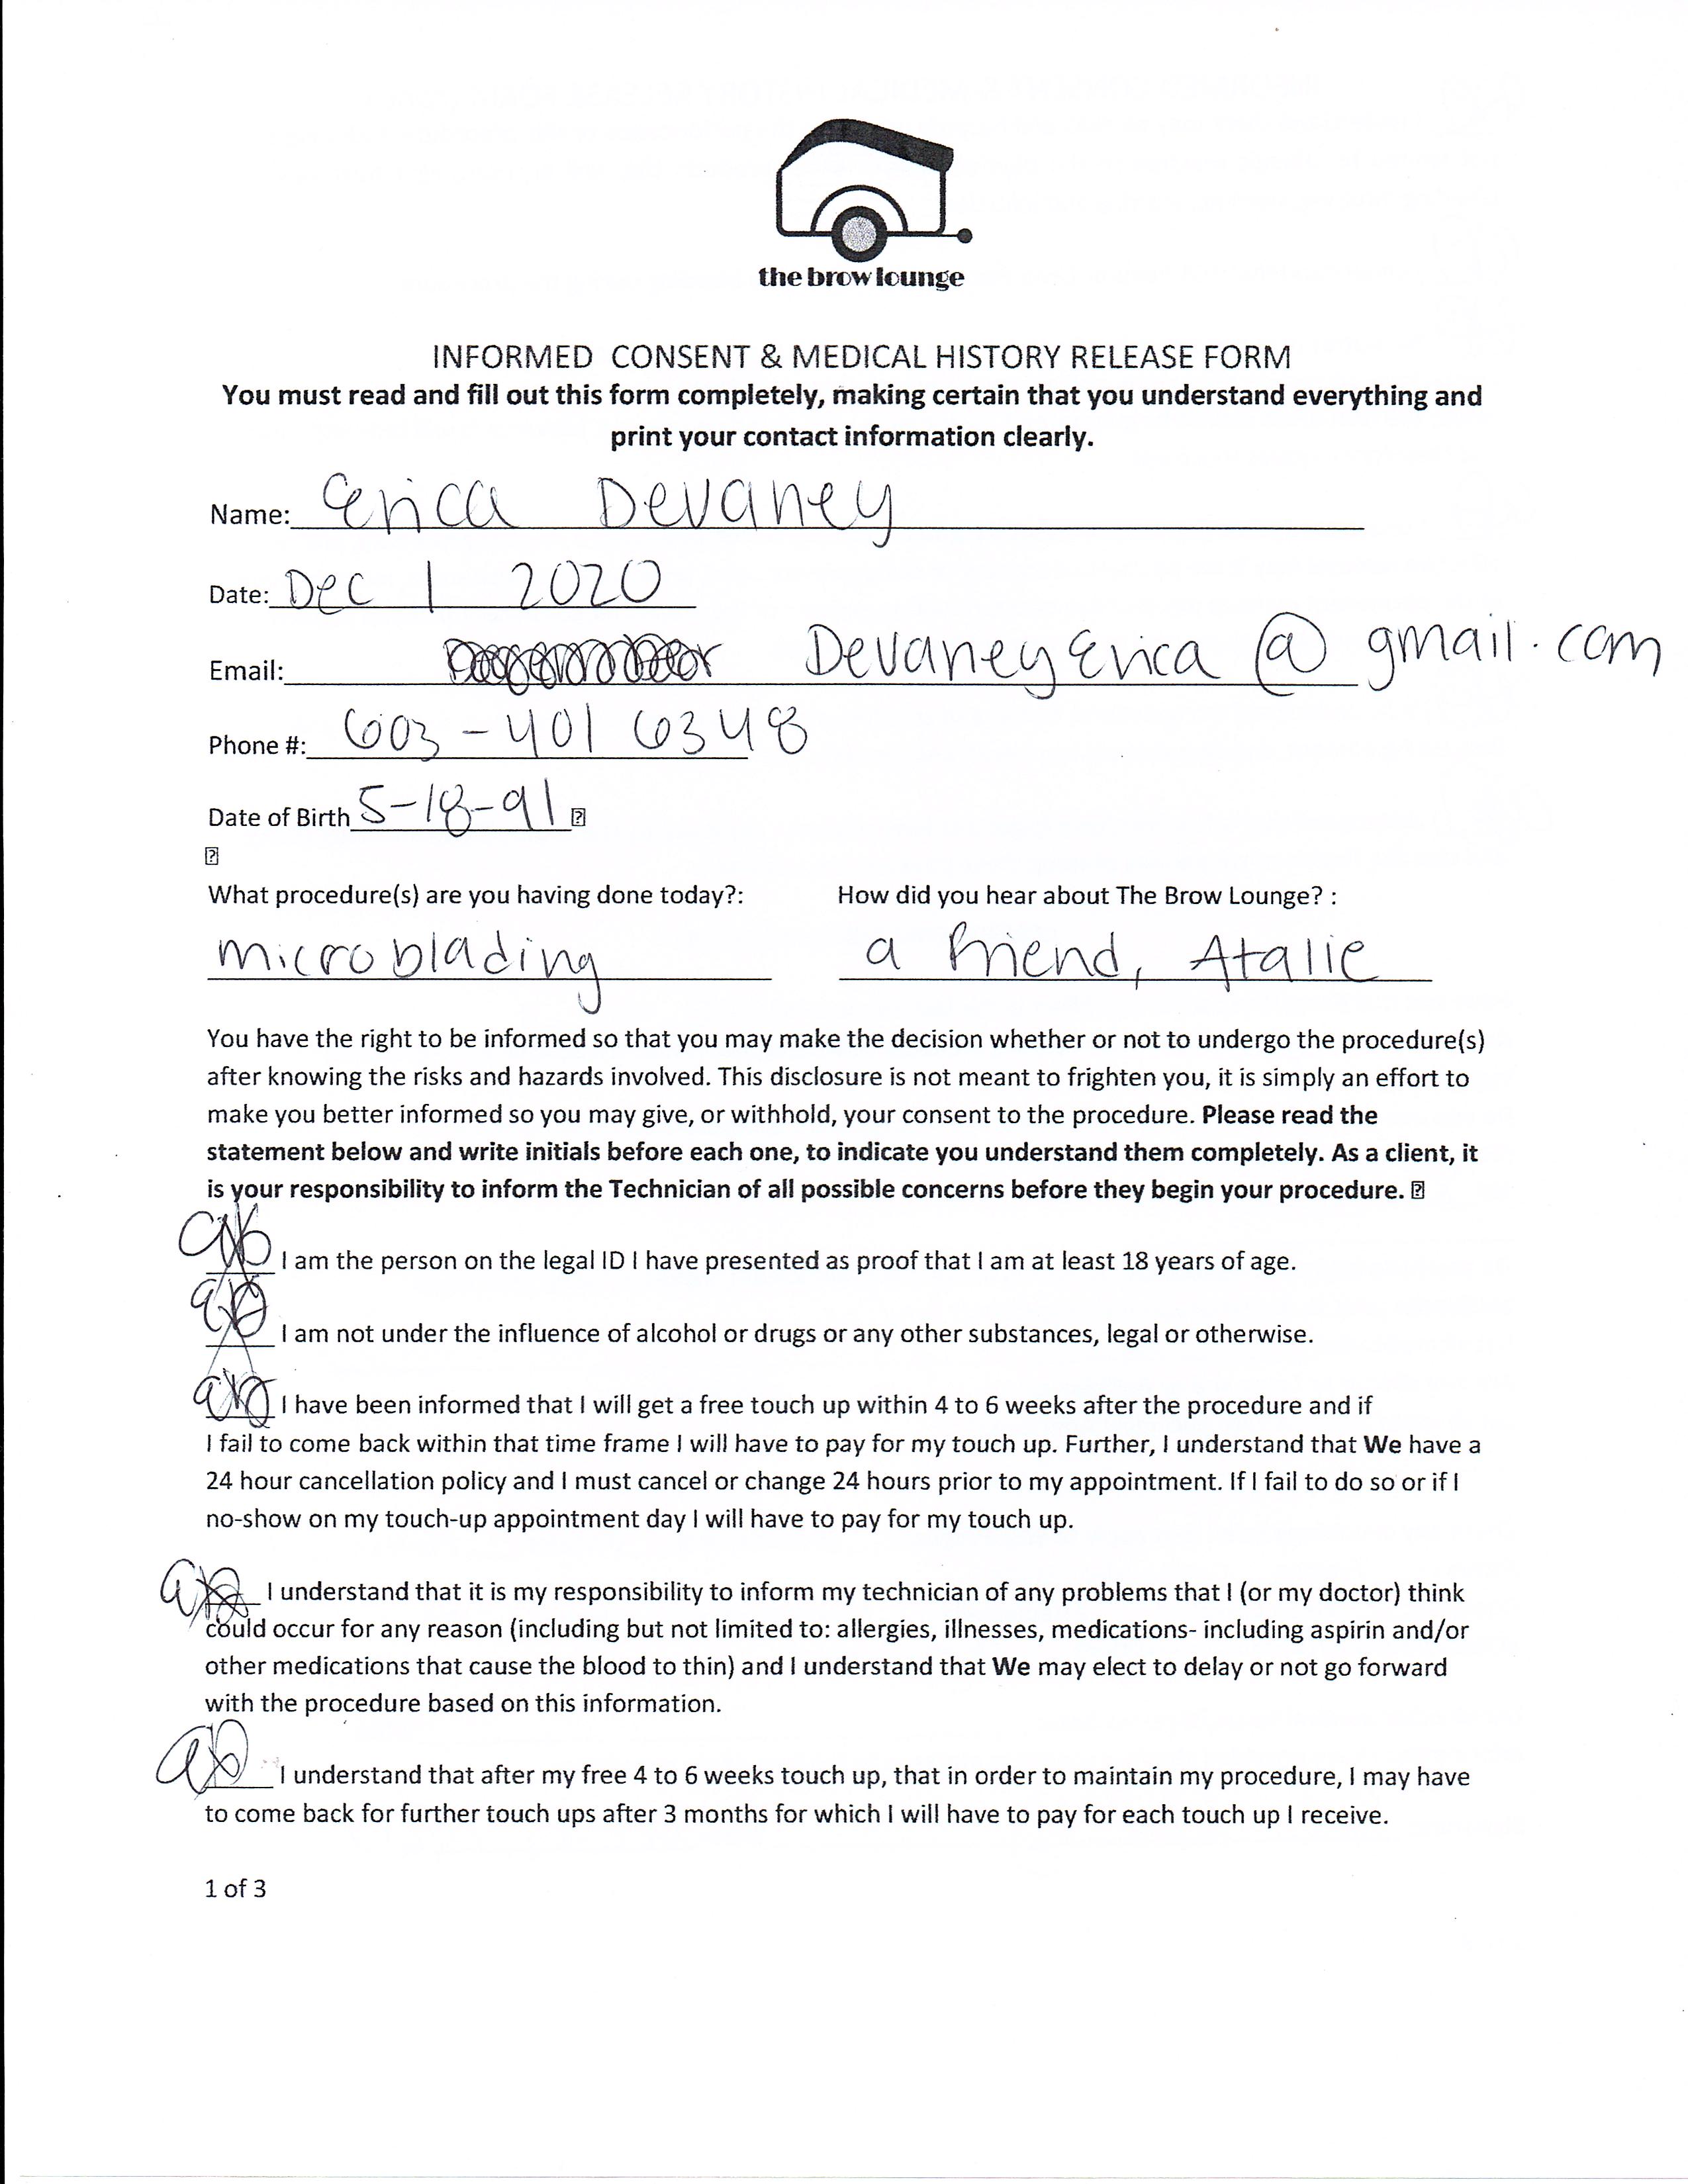 the brow lounge
INFORMED CONSENT & MEDICAL HISTORY RELEASE FORM
You must read and fill out this form completely, making certain that you understand everything and
print your contact information clearly.
Name: Erica Devaney
Date: Dec 1 2020
Email: DevaneyErica@gmail.com
Phone #: 603-401 6348
Date of Birth 5-18-91
What procedure(s) are you having done today?: How did you hear about The Brow Lounge? :
microblading a friend, Atalie
You have the right to be informed so that you may make the decision whether or not to undergo the procedure(s)
after knowing the risks and hazards involved. This disclosure is not meant to frighten you, it is simply an effort to
make you better informed so you may give, or withhold, your consent to the procedure. Please read the
statement below and write initials before each one, to indicate you understand them completely. As a client, it
is your responsibility to inform the Technician of all possible concerns before they begin your procedure.
I am the person on the legal ID I have presented as proof that I am at least 18 years of age.
I am not under the influence of alcohol or drugs or any other substances, legal or otherwise.
I have been informed that I will get a free touch up within 4 to 6 weeks after the procedure and if
I fail to come back within that time frame I will have to pay for my touch up. Further, I understand that We have a
24 hour cancellation policy and I must cancel or change 24 hours prior to my appointment. If I fail to do so or if I
no-show on my touch-up appointment day I will have to pay for my touch up.
I understand that it is my responsibility to inform my technician of any problems that I (or my doctor) think
could occur for any reason (including but not limited to: allergies, illnesses, medications- including aspirin and/or
other medications that cause the blood to thin) and I understand that We may elect to delay or not go forward
with the procedure based on this information.
I understand that after my free 4 to 6 weeks touch up, that in order to maintain my procedure, I may have
to come back for further touch ups after 3 months for which I will have to pay for each touch up I receive.
1 of 3